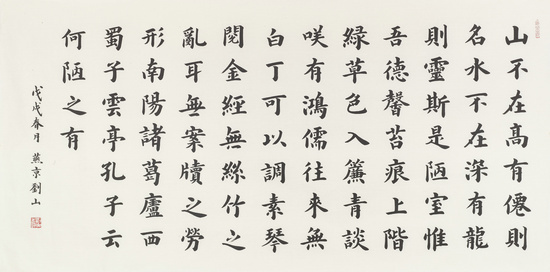 山不在高有僊則
名水不在深有龍
則靈斯是陋室惟
吾德馨苔痕上階
綠草色入簾青談
咲有鴻儒往來無
白丁可以調素琴
閱金經無絲竹之
亂耳無案牘之勞
形南陽諸葛廬西
蜀子雲亭孔子云
何陋之有
戊戌春月 燕京劉山